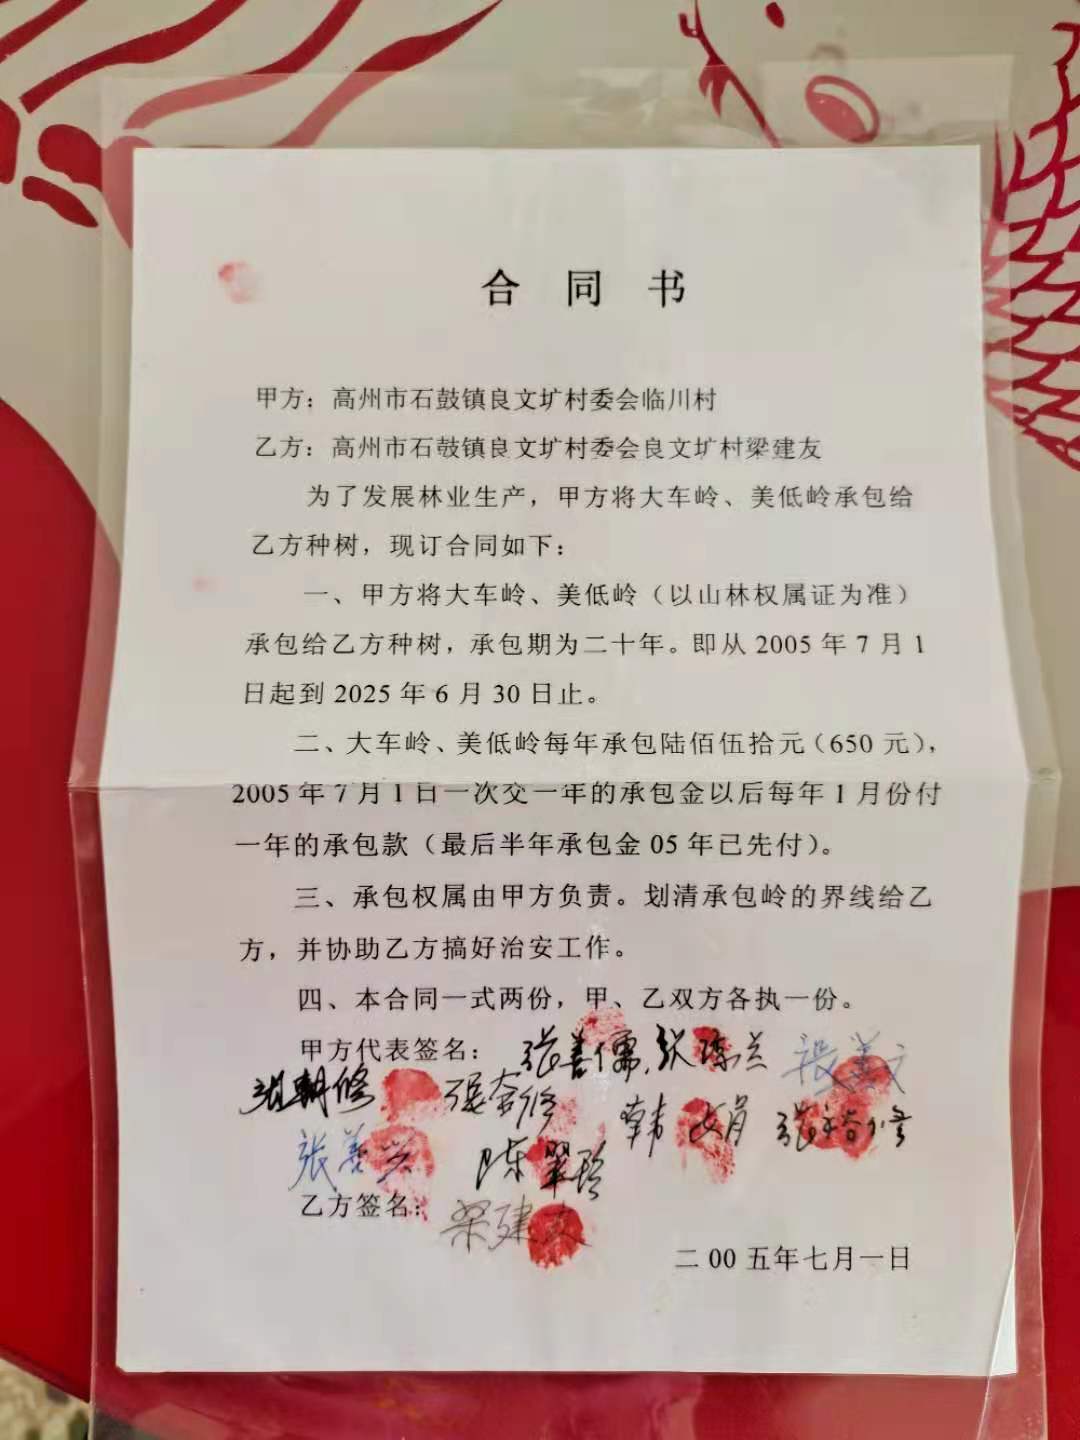 合同书
甲方：高州市石鼓镇良文圹村委会临川村
乙方：高州市石鼓镇良文圹村委会良文圹村梁建友
为了发展林业生产，甲方将大车岭、美低岭承包给
乙方种树，现订合同如下：
一、甲方将大车岭、美低岭（以山林权属证为准）
承包给乙方种树，承包期为二十年。即从 2005 年 7 月 1
日起到 2025 年 6 月 30 日止。
二、大车岭、美低岭每年承包陆佰伍拾元（650 元），
2005 年 7 月 1 日一次交一年的承包金以后每年 1 月份付
一年的承包款（最后半年承包金 05 年已先付）。
三、承包权属由甲方负责。划清承包岭的界线给乙
方，并协助乙方搞好治安工作。
四、本合同一式两份，甲、乙双方各执一份。
甲方代表签名：张善儒 张琼兰 张善文
张朝修 张 修 韩 娟 张 修
张善兴 陈翠玲
乙方签名：梁建友
二 00 五年七月一日